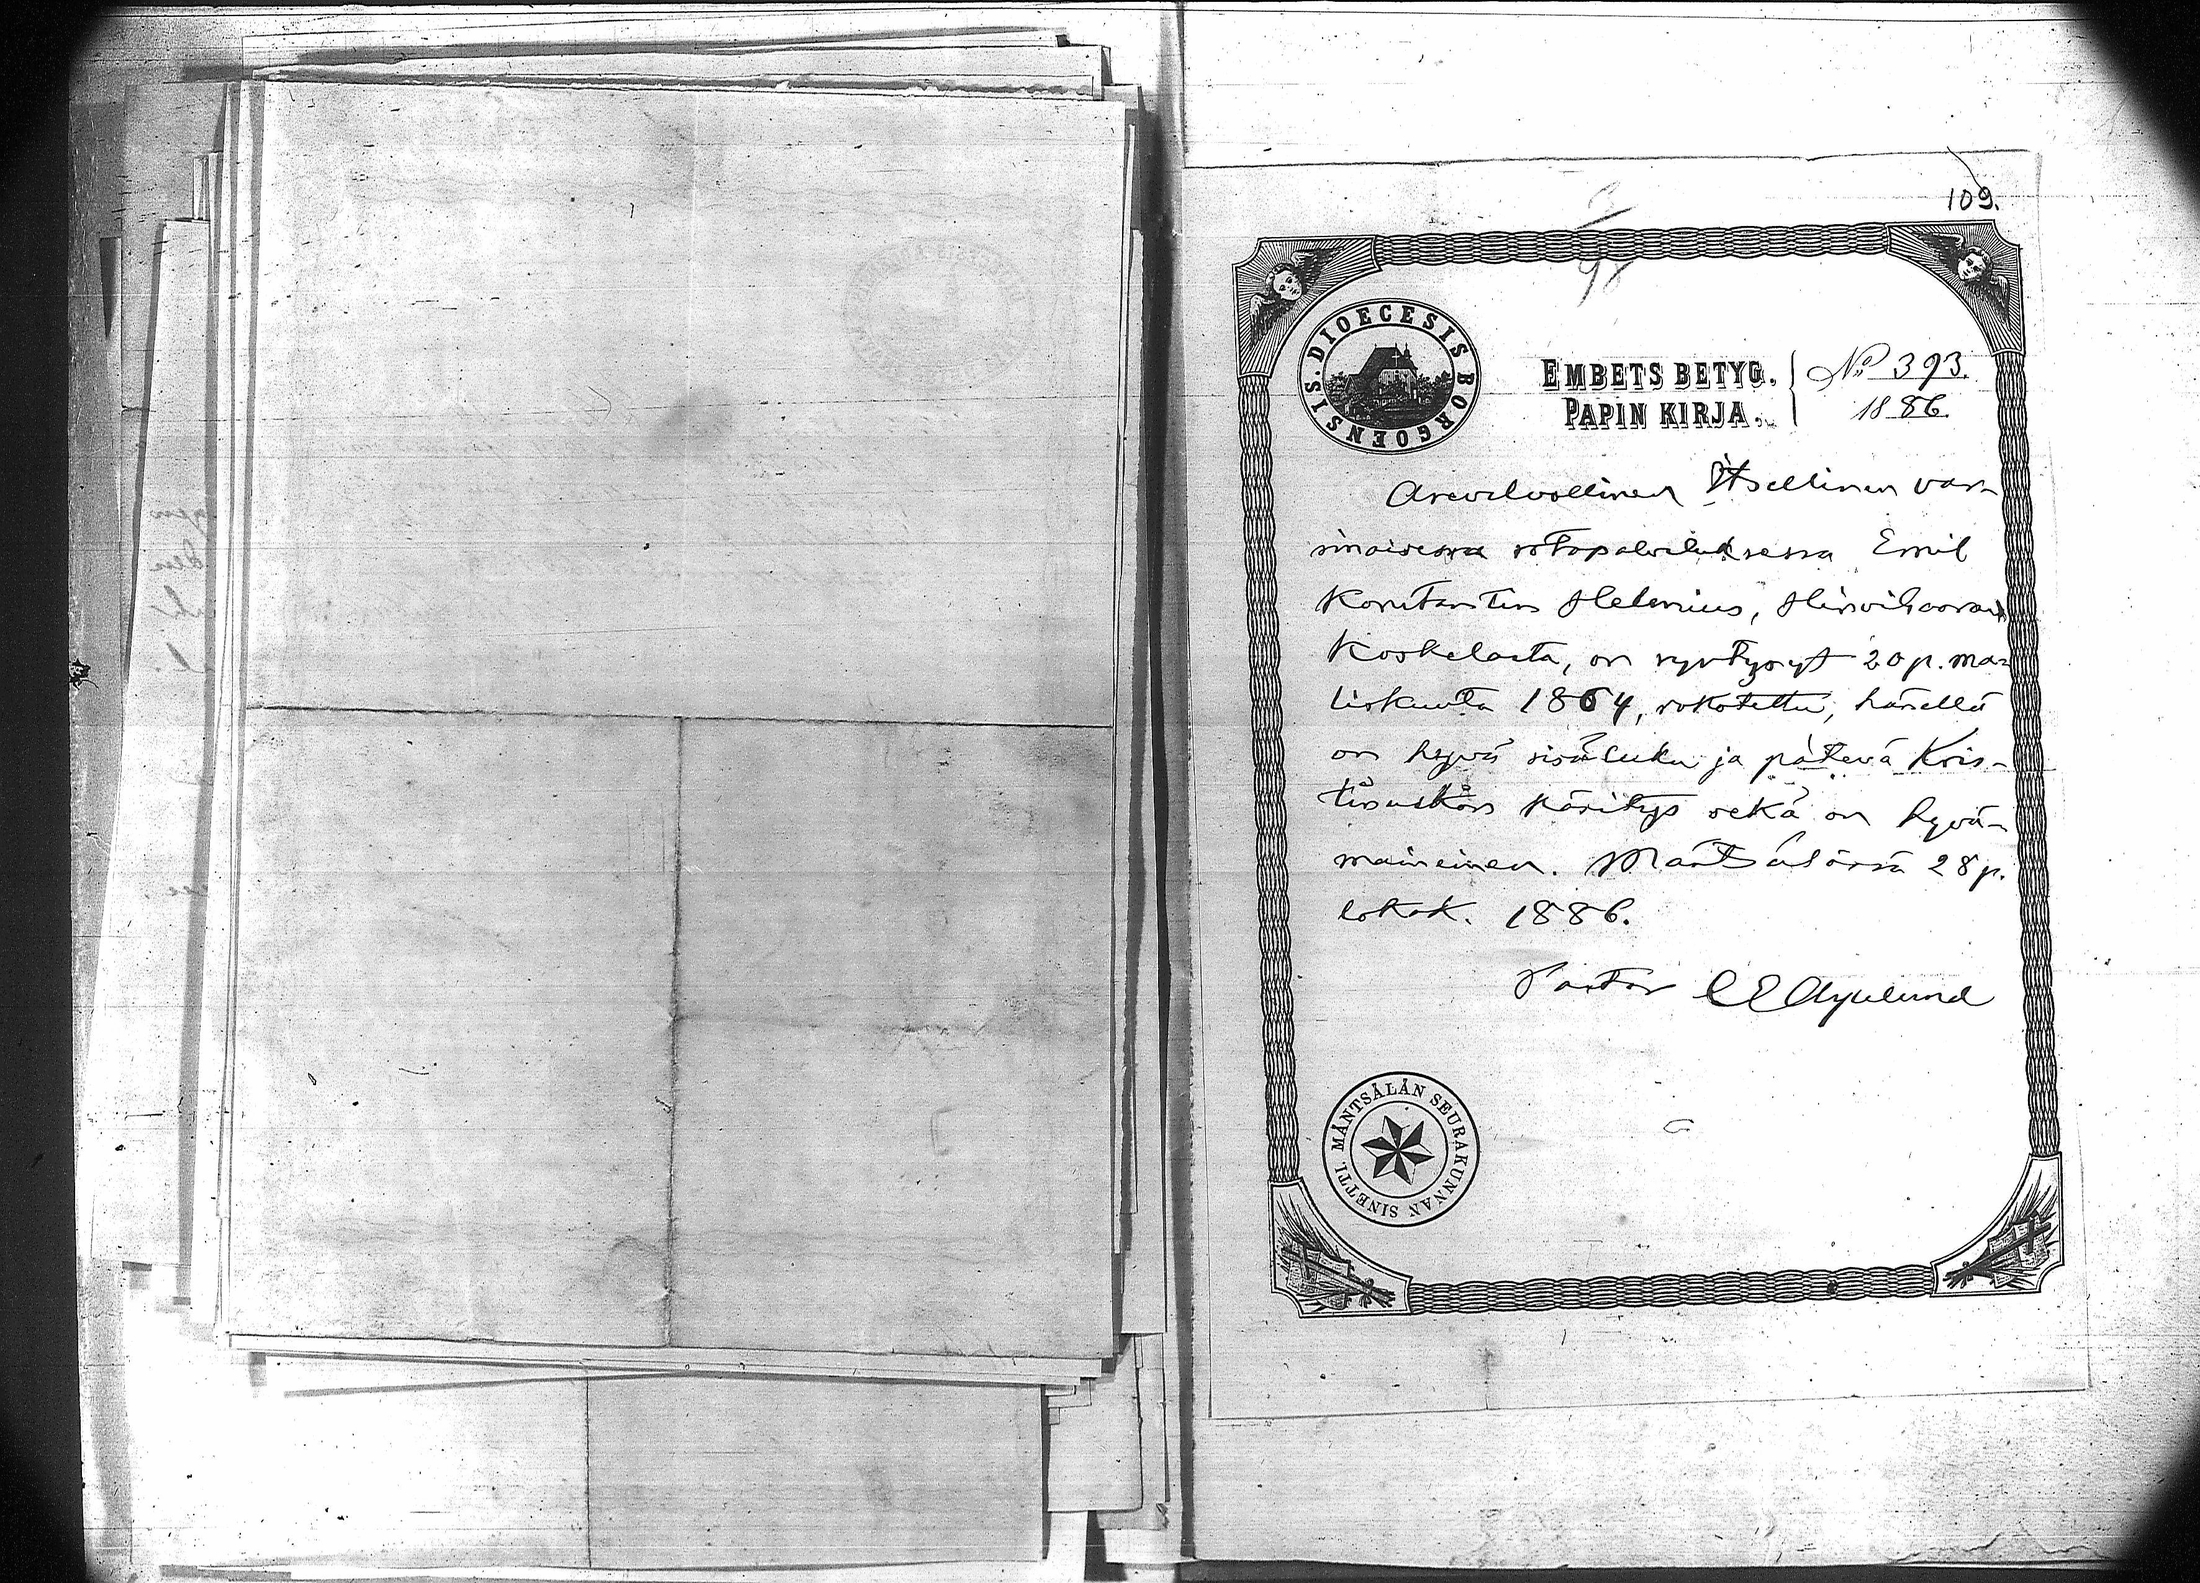 109.
S. DIOECESIS BORGOENSIS
EMBETS BETYG.
PAPIN KIRJA.
No 393.
1886.
Itsellinen var-
sinaisessa sotapalveluksessa Emil
Konstantin Helenius, Hirvihaaran
Koskelasta, on syntynyt 20 p. maa-
liskuuta 1864, rokotettu, hänellä
on hyvä sisäluku ja pätevä Kris-
tinuskon käsitys sekä on hyvä-
maineinen. Mäntsälässä 28 p.
lokak. 1886.
Pastor
MÄNTSÄLÄN SEURAKUNNAN SINETTI